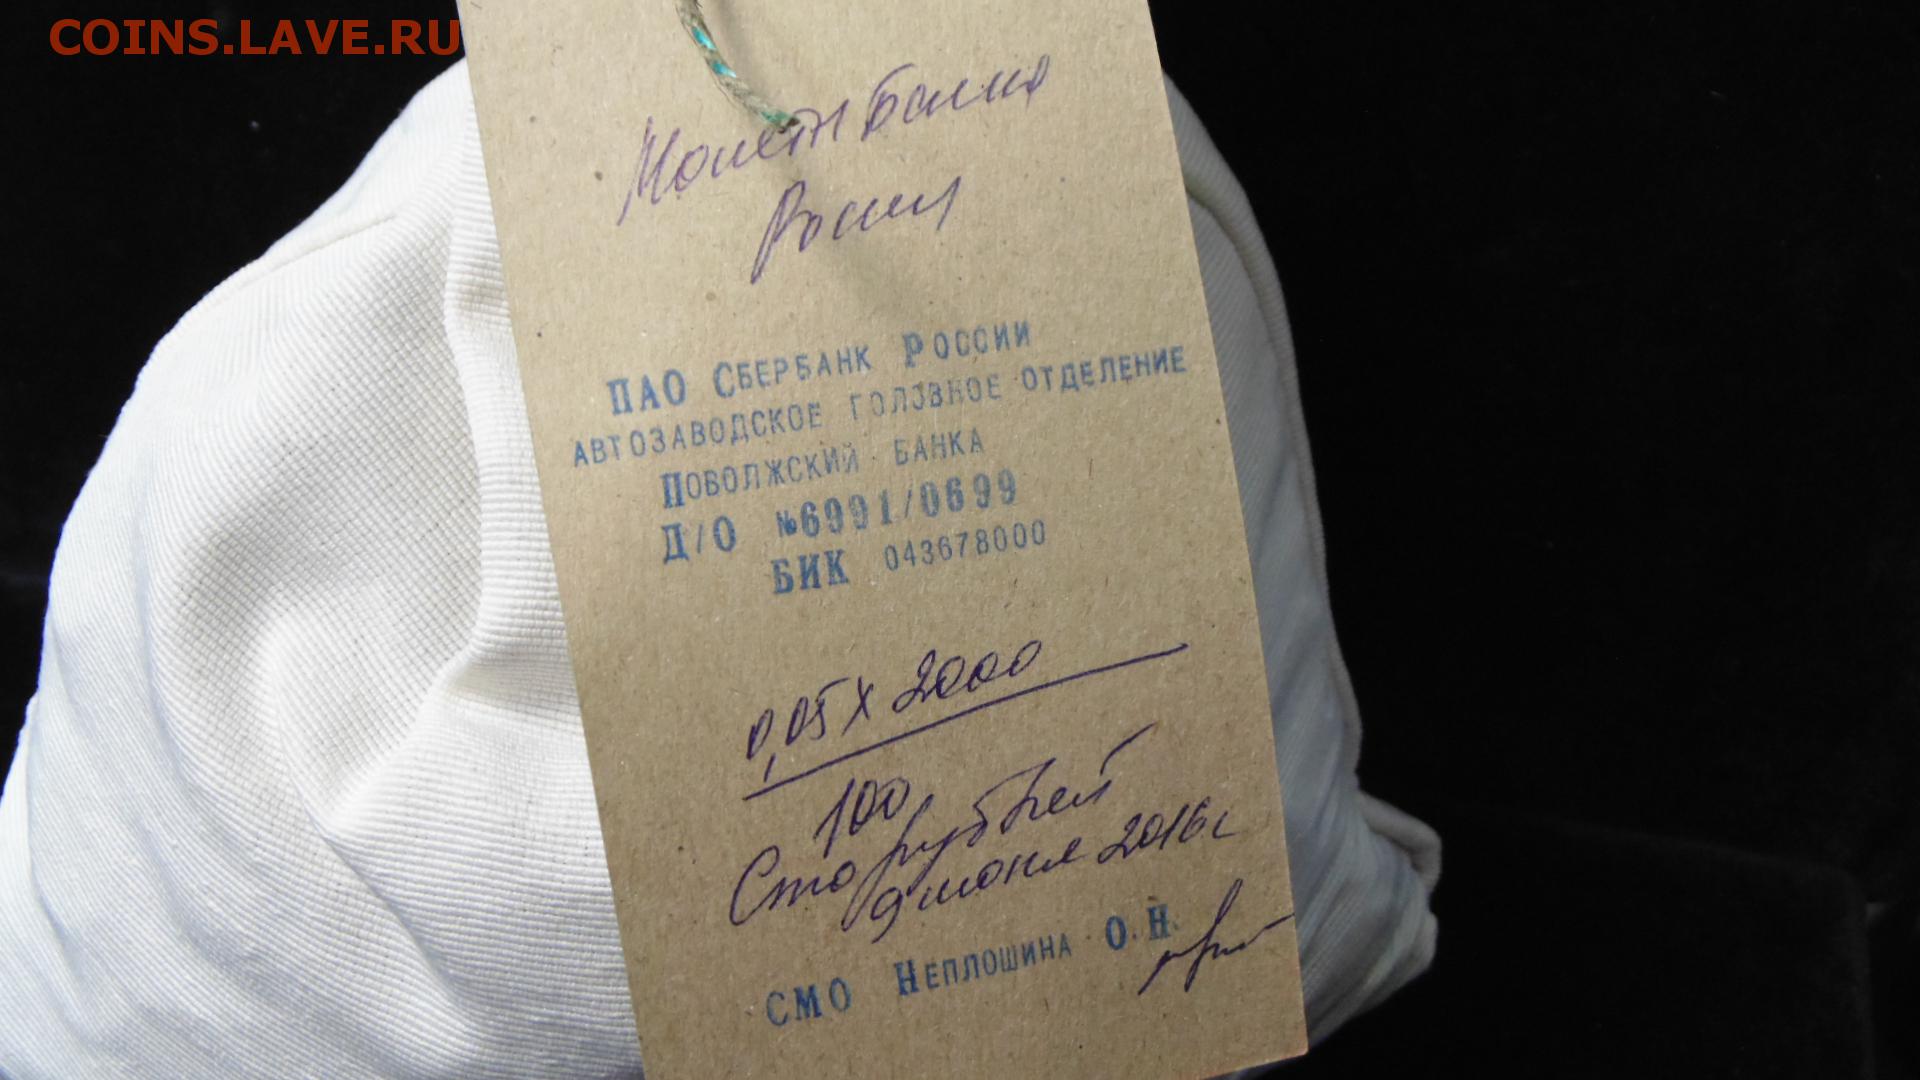 COINS.LAVE.RU
Монеты Банка
России
ПАО СБЕРБАНК РОССИИ
АВТОЗАВОДСКОЕ ГОЛОВНОЕ ОТДЕЛЕНИЕ
ПОВОЛЖСКИЙ БАНКА
Д/О №6991/0699
БИК 043678000
0,05 х 2000
100
Сто рублей
9 июня 2016г
СМО НЕПЛОШИНА О.Н.